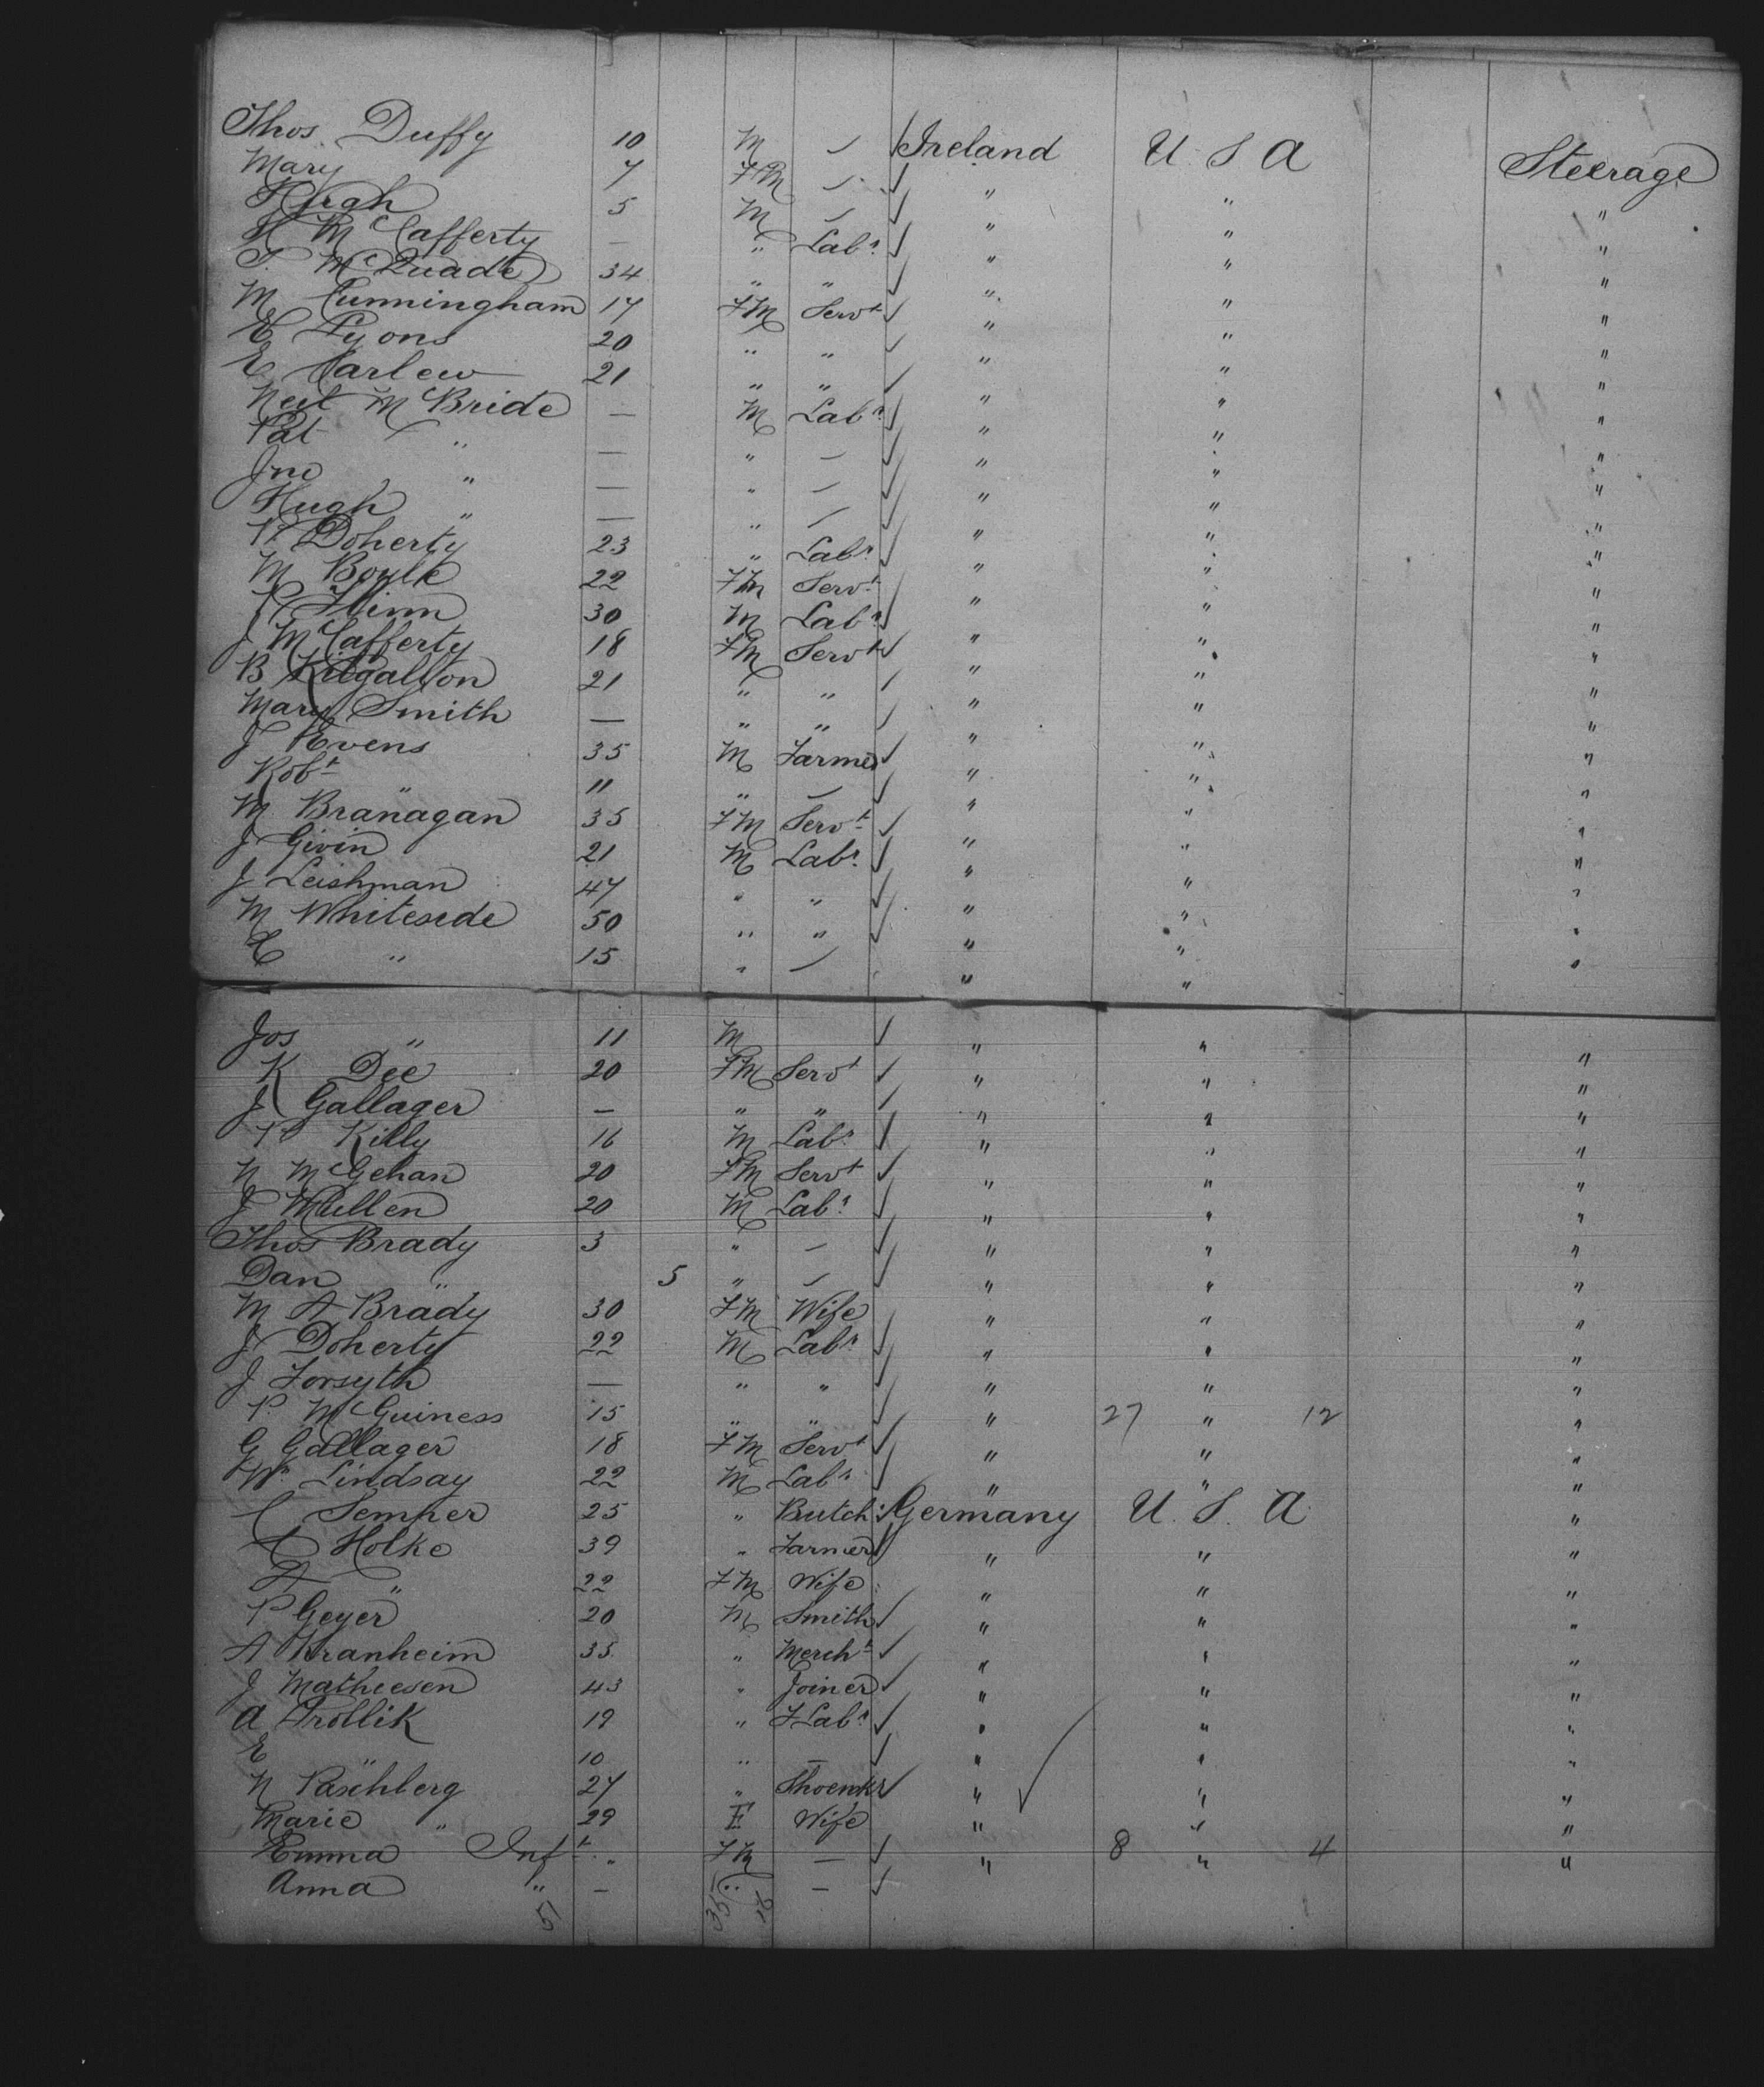 Thos Duffy 10 M ✓ Ireland U S A Steerage
Mary 7 FM ✓ " " "
Hugh 5 M ✓ " " "
H McCafferty — " Labr ✓ " " "
T. McQuade 34 " " ✓ " " "
M Cunningham 17 FM Servt ✓ " " "
E Lyons 20 " " ✓ " " "
E Carlew 21 " " ✓ " " "
Neil McBride — M Labr ✓ " " "
Pat " — " — ✓ " " "
Jno " — " — ✓ " " "
Hugh " — " — ✓ " " "
P. Doherty 23 " Labr ✓ " " "
M Boyle 22 FM Servt ✓ " " "
J Flinn 30 M Labr ✓ " " "
J McCafferty 18 FM Servt ✓ " " "
B Kilgallon 21 " " ✓ " " "
Mary Smith — " " ✓ " " "
J Evens 35 M Farmer ✓ " " "
Robt " 11 " — ✓ " " "
M Branagan 35 FM Servt ✓ " " "
J Givin 21 M Labr ✓ " " "
J Leishman 47 " " ✓ " " "
M Whiteside 50 " " ✓ " " "
" 15 " — " " "
Jos " 11 M ✓ " " "
K Dee 20 FM Servt ✓ " " "
J Gallager — " " ✓ " " "
P Killy 16 M Labr ✓ " " "
N McGehan 20 FM Servt ✓ " " "
J Mullen 20 M Labr ✓ " " "
Thos Brady 3 " — ✓ " " "
Dan " 5 " — ✓ " " "
M A Brady 30 FM Wife " " "
J Doherty 22 M Labr ✓ " " "
J Forsyth — " " ✓ " " "
P. McGuiness 15 " " ✓ " 27 " 12 "
G Gallager 18 FM Servt ✓ " " "
Wm Lindsay 22 M Labr ✓ " " "
C Semper 25 " Butch: ✓ Germany U. S. A "
C Holke 39 " Farmer ✓ " " "
A " 22 FM Wife " " "
P Geyer 20 M Smith ✓ " " "
A Kranheim 35 " Mercht ✓ " " "
J Mathiesen 43 " Joiner ✓ " " "
A Trollik 19 " F Labr ✓ " " "
E " 10 " — ✓ " " "
N Paschberg 27 " Shoemkr ✓ " ✓ " "
Marie " 29 F Wife " " "
Emma Inft " FM — ✓ " 8 " 4 "
Anna " — " — ✓
5 35